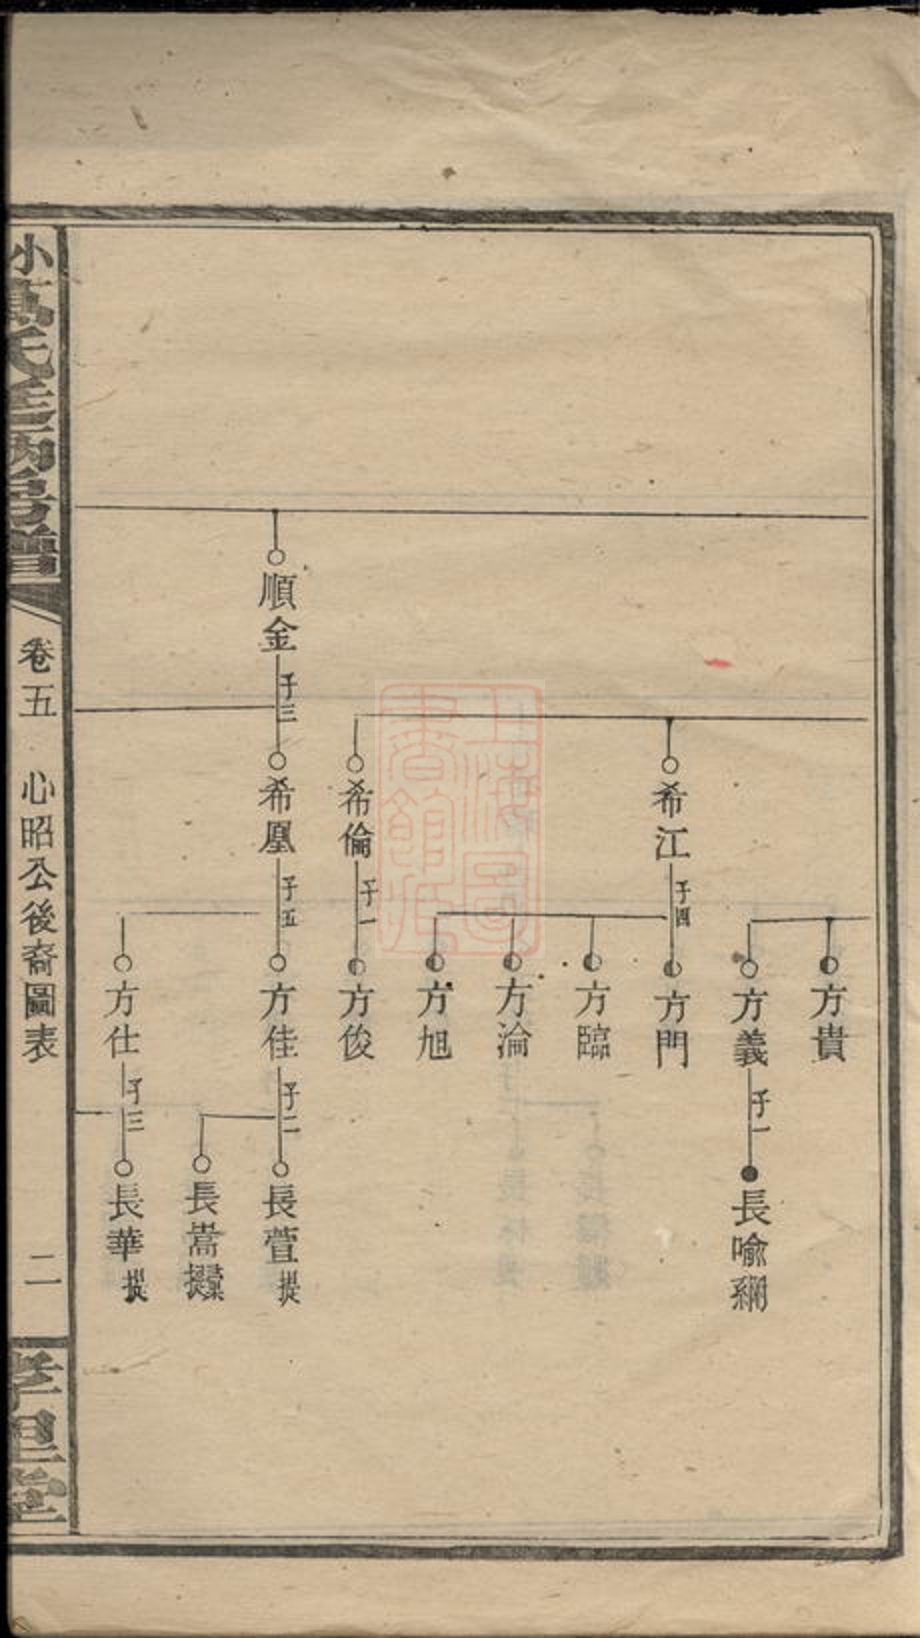 方貴
方義
子一
長喻綱
希江
子四
方門
方臨
方淪
方旭
希倫
子一
方俊
順金
子三
希凰
子五
方佳
子二
長萱
長嵩
方仕
子三
長華
卷五
心昭公後裔圖表
二
上海圖書館藏